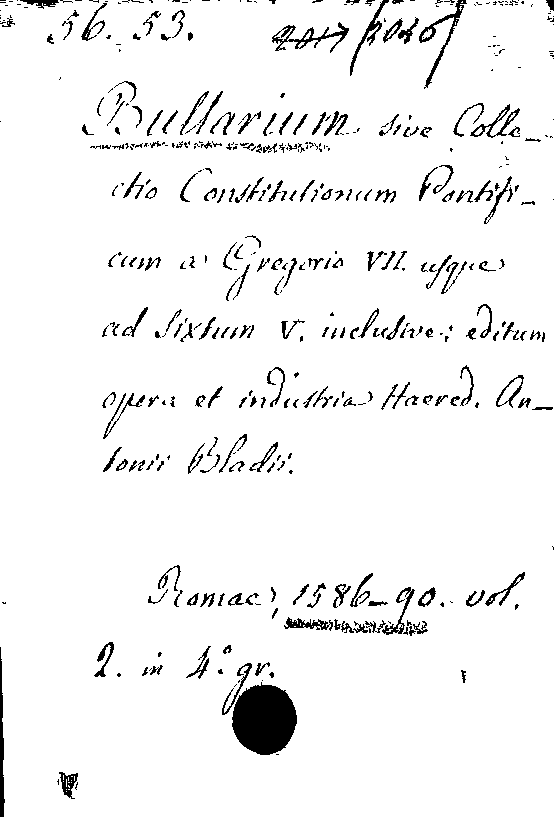 56. 53. 2017 2026
Bullarium sive Colle-
ctio Constitutionum Pontifi-
cum a Gregorio VII. usque
ad Sixtum V. inclusive; editum
opera et industria Haered. An-
tonii Bladii.
Romae, 1586-90. vol.
2. in 4.° gr.